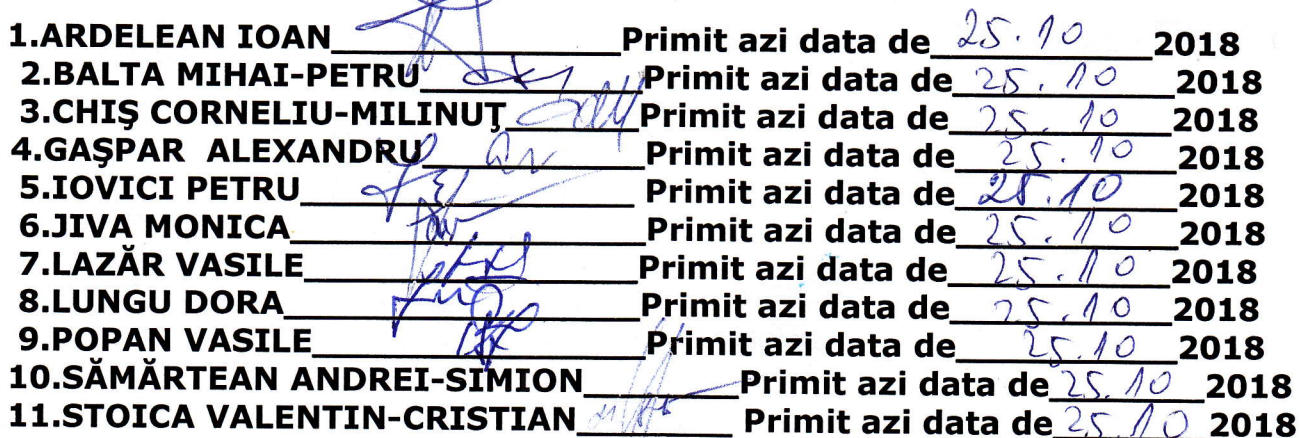 1.ARDELEAN IOAN____________________Primit azi data de 25.10 2018
2.BALTA MIHAI-PETRU________________Primit azi data de 25.10 2018
3.CHIŞ CORNELIU-MILINUŢ_________Primit azi data de 25.10 2018
4.GAŞPAR ALEXANDRU_______________Primit azi data de 25.10 2018
5.IOVICI PETRU_______________________Primit azi data de 25.10 2018
6.JIVA MONICA________________________Primit azi data de 25.10 2018
7.LAZĂR VASILE_______________________Primit azi data de 25.10 2018
8.LUNGU DORA________________________Primit azi data de 25.10 2018
9.POPAN VASILE______________________Primit azi data de 25.10 2018
10.SĂMĂRTEAN ANDREI-SIMION__________Primit azi data de 25.10 2018
11.STOICA VALENTIN-CRISTIAN__________ Primit azi data de 25.10 2018